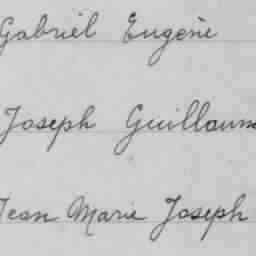 Gabriel Eugène
Joseph Guillaum
Jean Marie Joseph